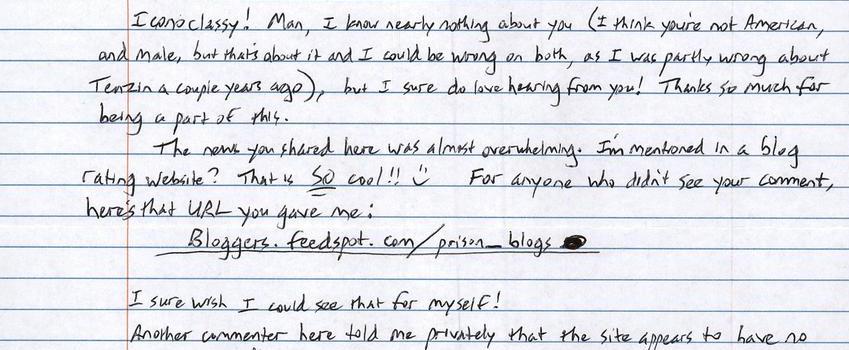 Iconoclassy! Man, I know nearly nothing about you (I think you're not American,
and male, but that's about it and I could be wrong on both, as I was partly wrong about
Tenzin a couple years ago), but I sure do love hearing from you! Thanks so much for
being a part of this.
The news you shared here was almost overwhelming. I'm mentioned in a blog
rating website? That is SO cool!! :)
For anyone who didn't see your comment,
here's that URL you gave me:
Bloggers.feedspot.com/prison_blogs
I sure wish I could see that for myself!
Another commenter here told me privately that the site appears to have no